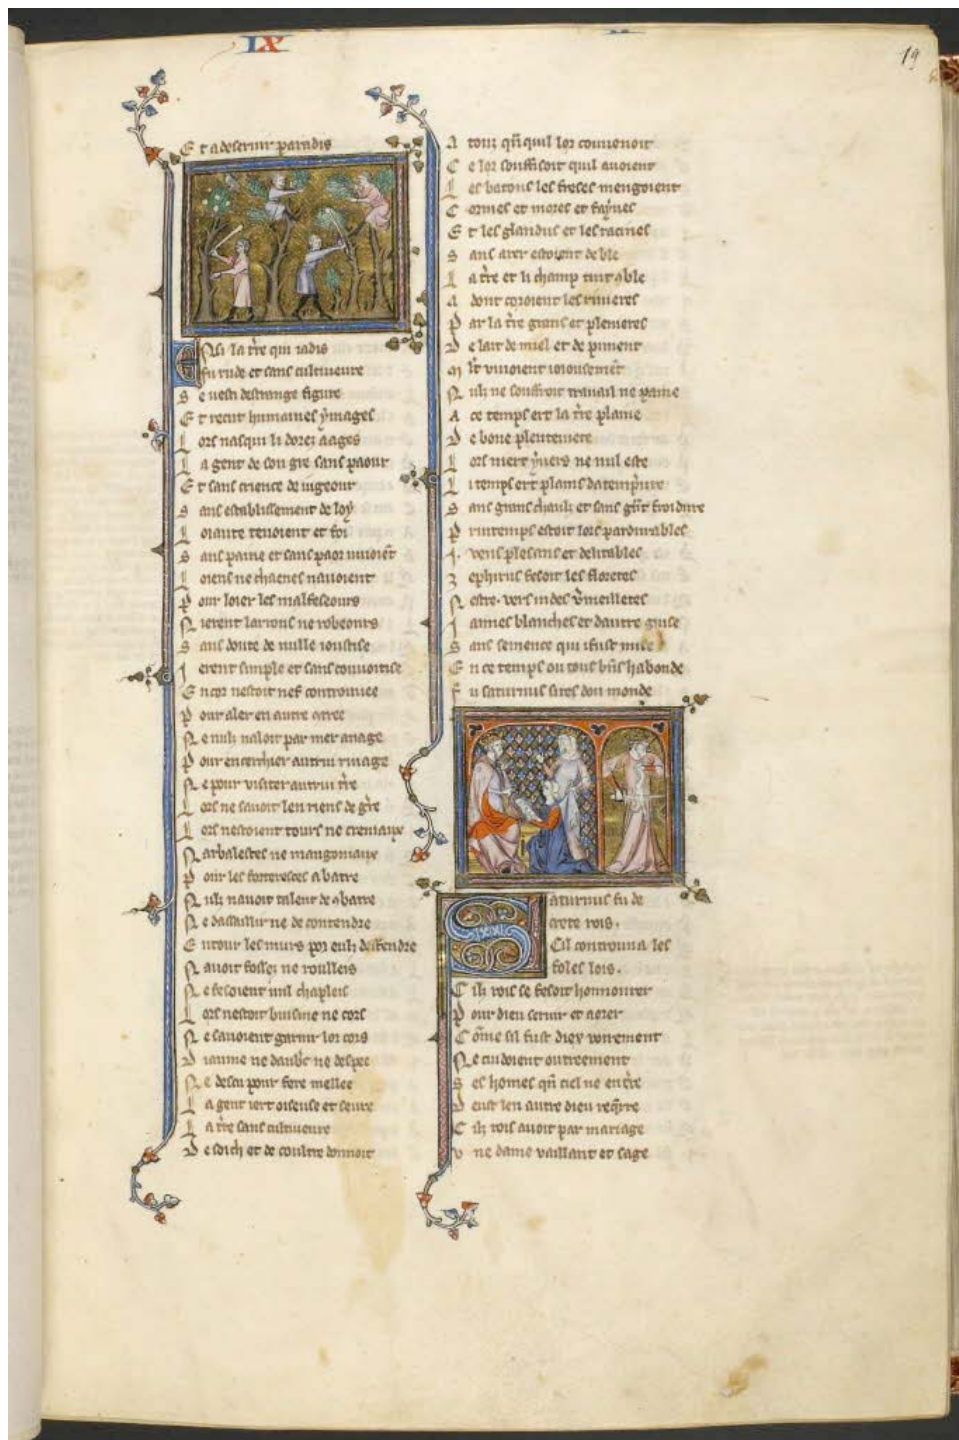 IX
19
E t a deservir paradis
E Nsi la t̄re qui iadis
fu rude et sans cultiveure
S e vesti destrange figure
E t recut humaines ymages
L ors nasqui li dorez aages
L a gent de son gre sans paour
E t sans crience de iugeour
S ans establissement de loy
L oiaute tenoient et foi
S ans paine et sans paor vivoiēt
L oiens ne chaenes navoient
P our loier les malfeseours
N ierent larrons ne robeours
S ans doute de nulle ioustise
I erent simple et sans couvoitise
E ncor nestoit nef controuvee
P our aler en autre
N e nulz naloit par mer anage
P our encerchier autrui rivage
N e pour visiter autrui t̄re
L ors ne savoit len riens de gr̄e
L ors nestoient tours ne creniaux
N arbalestes ne mangoniaux
P our les forteresces abatre
N ulz navoit talent de 9batre
N e dassaillir ne de contendre
E ntour les murs por eulz deffendre
N avoit fossez ne roulleis
N e fesoient nul chapleis
L ors nestoit buisine ne cors
N e savoient garnir lor cors
D iaume ne daub̄c ne despee
N e descu pour fere mellee
L a gent iert oiseuse et seure
L a t̄re sans cultiveure
D e soich et de coultre donnoit
A touz qn̄quil lor couvenoit
C e lor souffisoit quil avoient
L es batons les freses mengoient
C ormes et mores et faynes
E t les glandus et les racines
S ans arer estoient de ble
L a t̄re et li champ tuit able
A dont coroient les rivieres
P ar la t̄re grans et plenieres
D e lait de miel et de piment
M lt̄ vivoient ioiousemēt
N ulz ne souffroit travail ne paine
A ce temps ert la t̄re plaine
D e bone plentivete
L ors niert yvers ne nul este
L i temps ert plains datemp̄ure
S ans grans chaulz et sans gn̄t froidure
P rintemps estoit lors pardurables
I . vens plesans et delitables
Z ephirus fesoit les floretes
N estre . vers indes v̄meilletes
I aunes blanches et dautre guise
S ans semence qui i fust mise
E n ce temps ou tous bn̄s habonde
F u saturnus sires dou monde
S aturnus fu de
crete rois .
Cil controuva les
foles lois .
C ilz rois se fesoit honnourer
P our dieu servir et aorer
C ōme sil fust diex voirement
N e cuidoient outreement
S es homes qn̄ ciel ne en t̄re
D eust len autre dieu req̄rre
C ilz rois avoit par mariage
U ne dame vaillant et sage